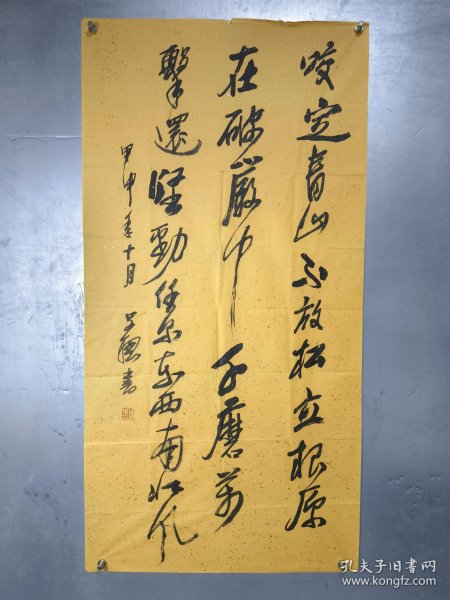 咬定青山不放松立根原
在破巖中千磨萬
擊還堅勁任尔东西南北风
甲申年十月
書
孔夫子旧书网
www.kongfz.com